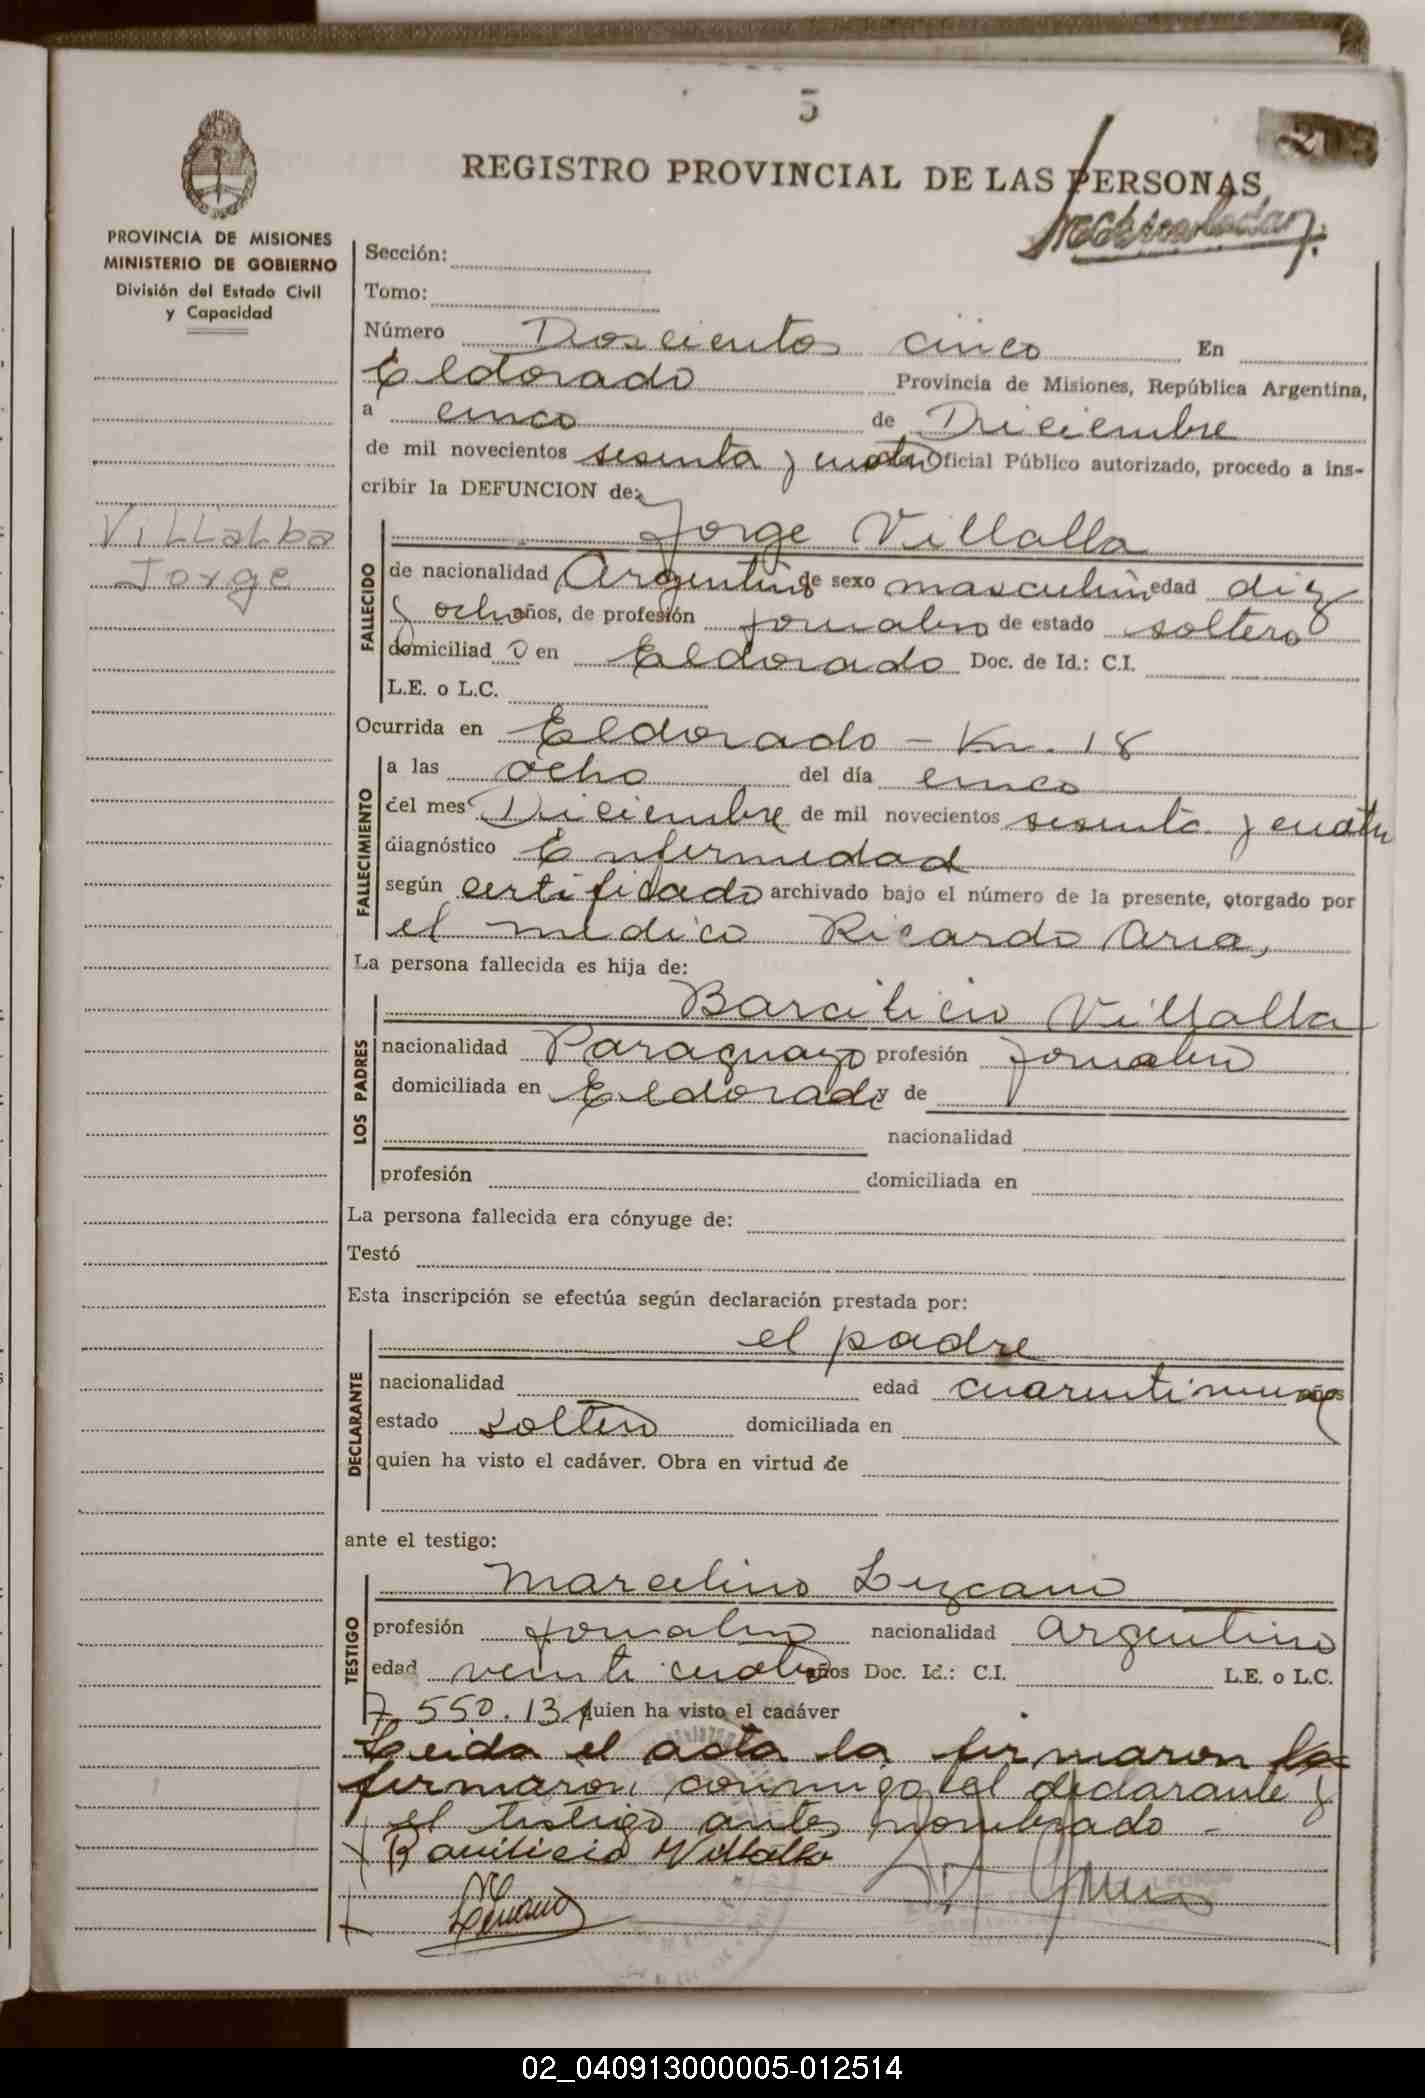 5
205
REGISTRO PROVINCIAL DE LAS PERSONAS
PROVINCIA DE MISIONES
MINISTERIO DE GOBIERNO
División del Estado Civil
y Capacidad
Villalba
Jorge
Sección:
Tomo:
Número Doscientos cinco En
Eldorado Provincia de Misiones, República Argentina,
a cinco de Diciembre
de mil novecientos sesenta y cuatro Oficial Público autorizado, procedo a ins-
cribir la DEFUNCION de:
Jorge Villalba
FALLECIDO
de nacionalidad Argentino de sexo masculino edad diez
y ocho años, de profesión jornalero de estado soltero
domiciliad o en Eldorado Doc. de Id.: C.I.
L.E. o L.C.
Ocurrida en Eldorado - Km. 18
FALLECIMIENTO
a las ocho del día cinco
del mes Diciembre de mil novecientos sesenta y cuatro
diagnóstico Enfermedad
según certificado archivado bajo el número de la presente, otorgado por
el medico Ricardo Aria,
La persona fallecida es hija de:
LOS PADRES
Villalba
nacionalidad Paraguayo profesión jornalero
domiciliada en Eldorado y de
nacionalidad
profesión domiciliada en
La persona fallecida era cónyuge de:
Testó
Esta inscripción se efectúa según declaración prestada por:
DECLARANTE
el padre
nacionalidad edad años
estado soltero domiciliada en
quien ha visto el cadáver. Obra en virtud de
ante el testigo:
TESTIGO
Marcelino Lezcano
profesión jornalero nacionalidad argentino
edad veinti cuatro años Doc. Id.: C.I. L.E. o L.C.
7.550.131 quien ha visto el cadáver
Leida el acta la firmaron la
firmaron conmigo el declarante y
el testigo antes nombrado -
Villalba
02_040913000005-012514